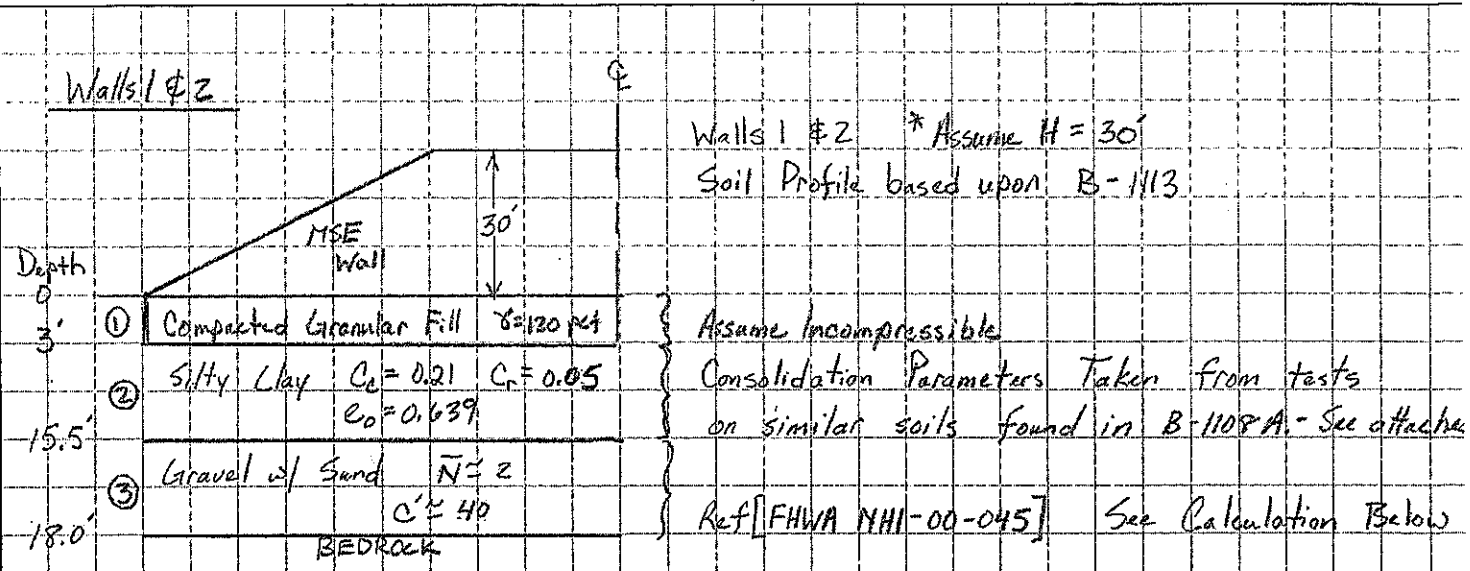 Walls 1 & 2
℄
Walls 1 & 2 * Assume H = 30'
Soil Profile based upon B-1113
30'
MSE
Wall
Depth
0
① Compacted Granular Fill γ=120 pcf
Assume Incompressible
3'
② Silty Clay Cc = 0.21 Cr = 0.05
e₀ = 0.639
Consolidation Parameters Taken from tests
on similar soils found in B-1108A.- See attached
15.5'
③ Gravel w/ Sand N̄ ≈ 2
C' ≈ 40
Ref [FHWA NHI-00-045] See Calculation Below
18.0'
BEDROCK